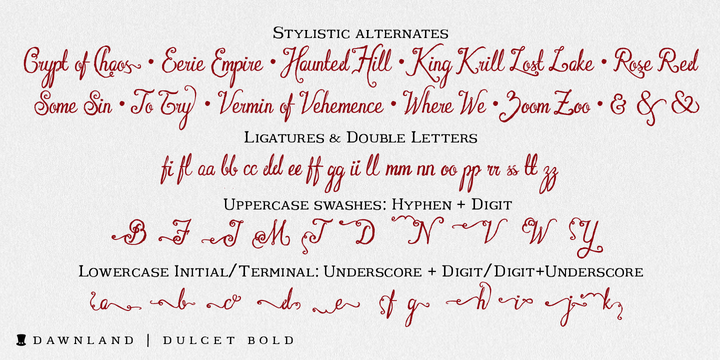 Stylistic alternates
Crypt of Chaos • Eerie Empire • Haunted Hill • King Krill Lost Lake • Rose Red
Some Sin • To Try • Vermin of Vehemence • Where We • Zoom Zoo • & & &
Ligatures & Double Letters
fi fl aa bb cc dd ee ff gg ii ll mm nn oo pp rr ss tt zz
Uppercase swashes: Hyphen + Digit
B F I M T D N V W Y
Lowercase Initial/Terminal: Underscore + Digit/Digit+Underscore
a b c d e f g h i j k
DAWNLAND | DULCET BOLD